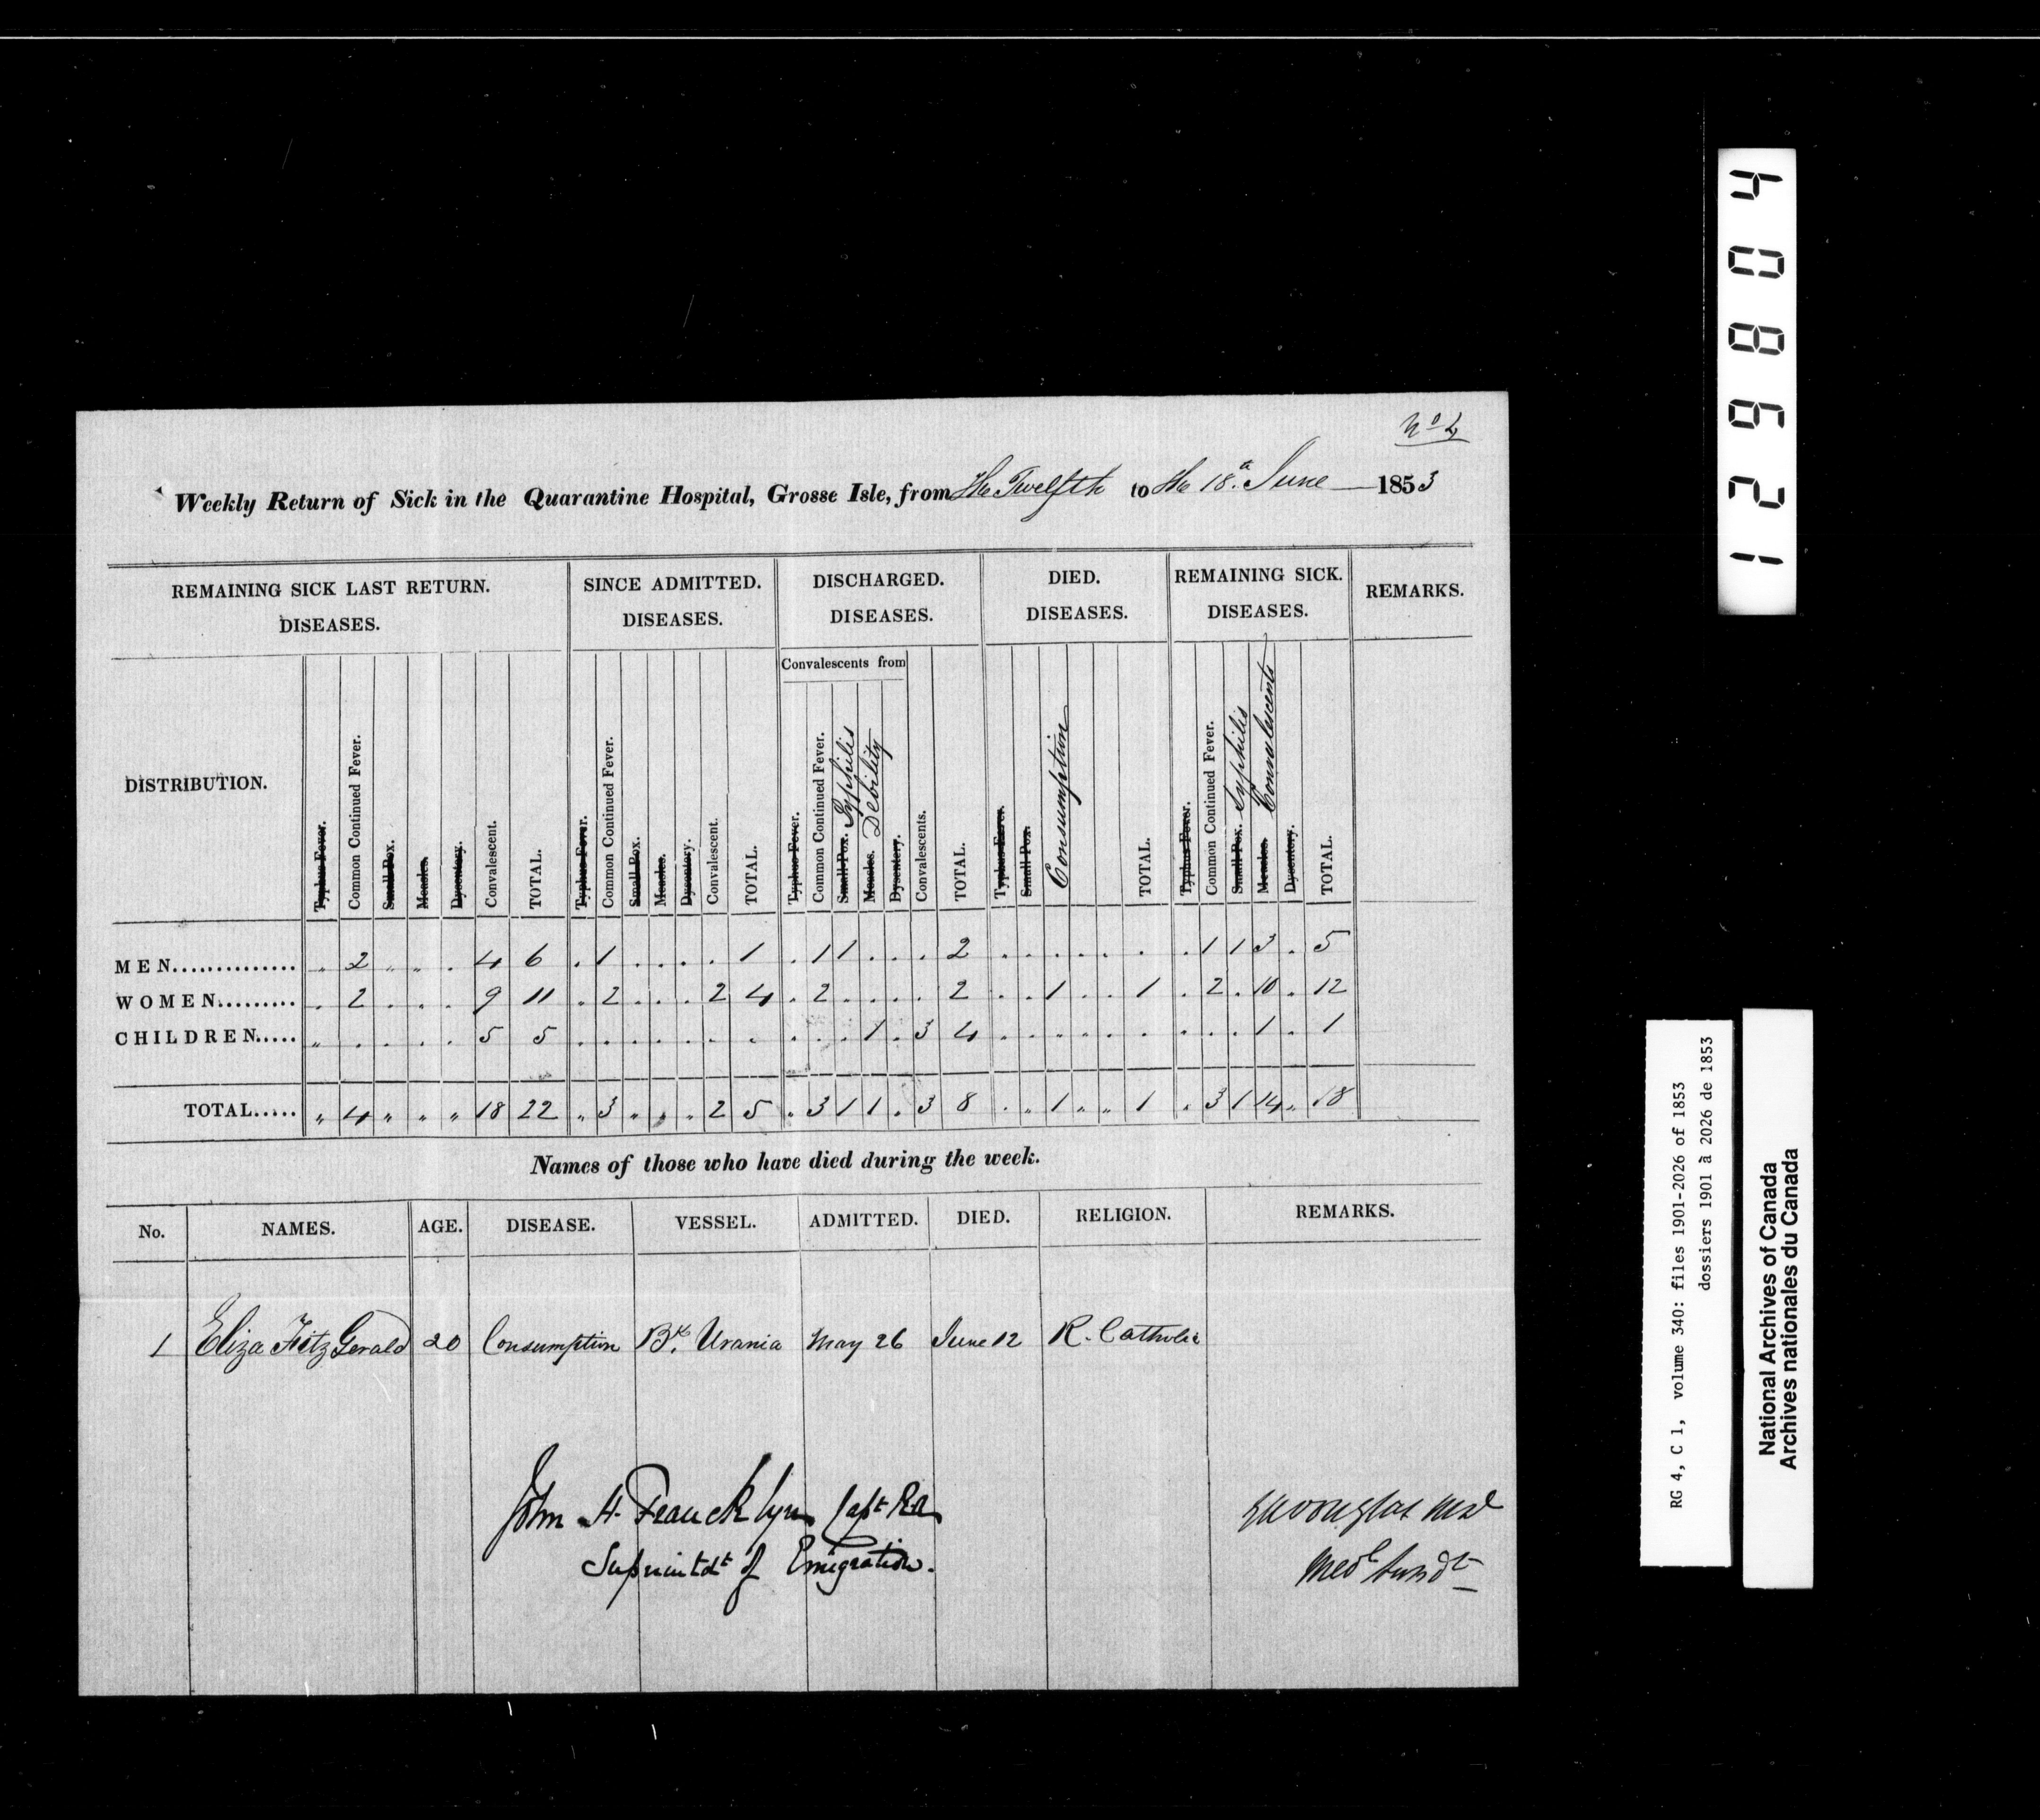 No 4
Weekly Return of Sick in the Quarantine Hospital, Grosse Isle, from The Twelfth to the 18th June 1853
REMAINING SICK LAST RETURN. DISEASES. SINCE ADMITTED. DISEASES. DISCHARGED. DISEASES. DIED. DISEASES. REMAINING SICK. DISEASES. REMARKS.
Convalescents from
DISTRIBUTION. Typhus Fever. Common Continued Fever. Small Pox. Measles. Dysentery. Convalescent. TOTAL. Typhus Fever. Common Continued Fever. Small Pox. Measles. Dysentery. Convalescent. TOTAL. Typhus Fever. Common Continued Fever. Small Pox. Syphilis Measles. Debility Dysentery. Convalescents. TOTAL. Typhus Fever. Small Pox. Consumption TOTAL. Typhus Fever. Common Continued Fever. Small Pox. Syphilis Measles. Convalescents Dysentery. TOTAL.
MEN.............. . 2 „ „ . 4 6 . 1 . . . . 1 . 1 1 . . . 2 . . . . . . . 1 1 3 . 5
WOMEN......... . 2 . . . 9 11 . 2 . . . 2 4 . 2 . . . . 2 . . 1 . . 1 . 2 . 10 . 12
CHILDREN..... „ . . . . 5 5 . . . . . . . . . . 1 . 3 4 . . . . . . . . . 1 . 1
TOTAL..... „ 4 „ „ „ 18 22 „ 3 „ „ „ 2 5 . 3 1 1 . 3 8 . „ 1 „ „ 1 . 3 1 14 „ 18
Names of those who have died during the week.
No. NAMES. AGE. DISEASE. VESSEL. ADMITTED. DIED. RELIGION. REMARKS.
1 Eliza FitzGerald 20 Consumption Bk. Urania May 26 June 12 R. Catholic
John H. Francklyn Capt RA
Suprintdt of Emigration.
GM Douglas MD
Medl Supdt
408621
RG 4, C 1, volume 340: files 1901-2026 of 1853
dossiers 1901 à 2026 de 1853
National Archives of Canada
Archives nationales du Canada